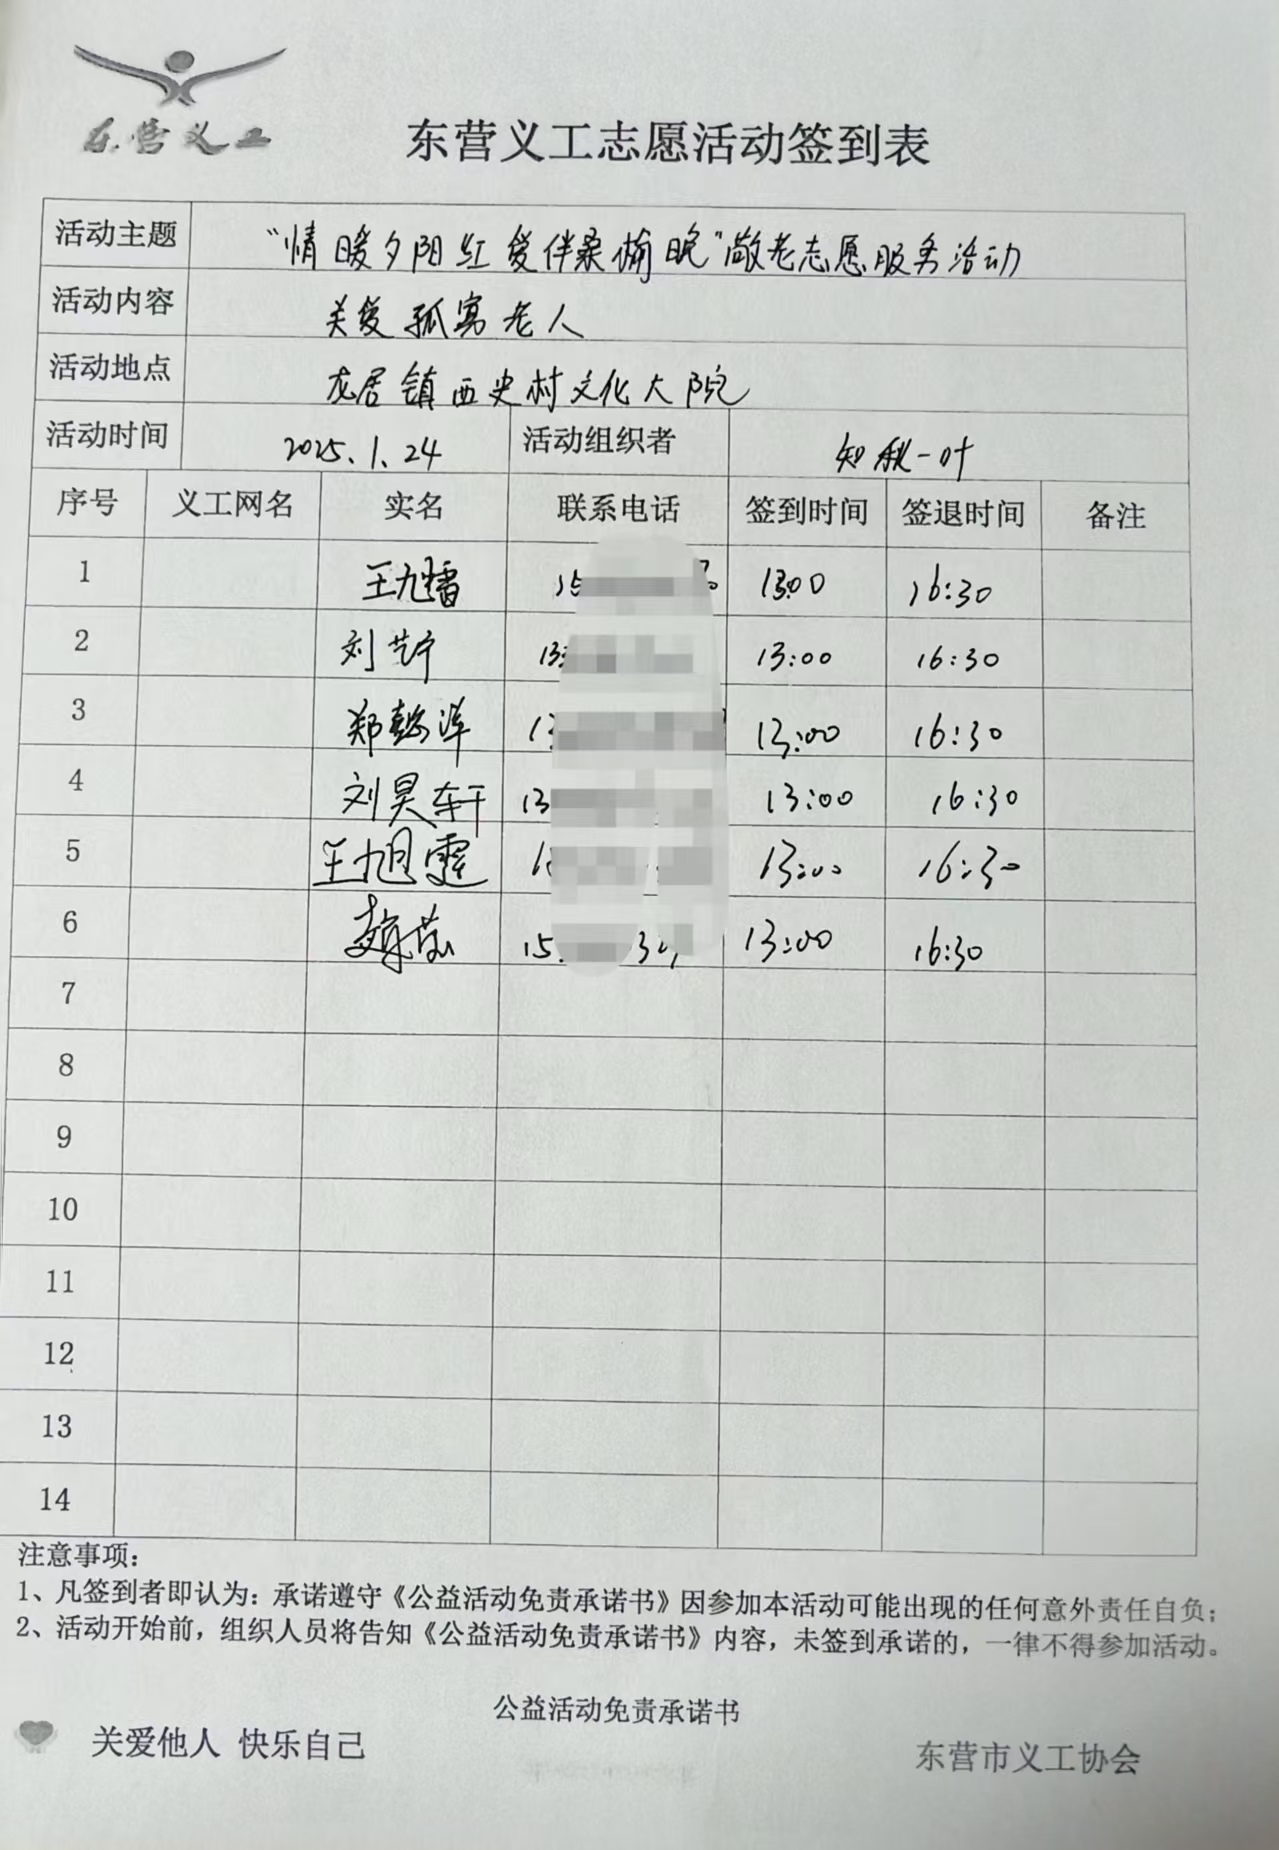 东营义工
东营义工志愿活动签到表
活动主题 “情暖夕阳红 爱伴桑榆晚”敬老志愿服务活动
活动内容 关爱孤寡老人
活动地点 龙居镇西史村文化大院
活动时间 2025.1.24 活动组织者 知秋一叶
序号 义工网名 实名 联系电话 签到时间 签退时间 备注
1 13:00 16:30
2 刘艺宁 13:00 16:30
3 郑懿洋 13:00 16:30
4 刘昊轩 13:00 16:30
5 王旭霆 13:00 16:30
6 15 13:00 16:30
7
8
9
10
11
12
13
14
注意事项：
1、凡签到者即认为：承诺遵守《公益活动免责承诺书》因参加本活动可能出现的任何意外责任自负；
2、活动开始前，组织人员将告知《公益活动免责承诺书》内容，未签到承诺的，一律不得参加活动。
公益活动免责承诺书
关爱他人 快乐自己
东营市义工协会